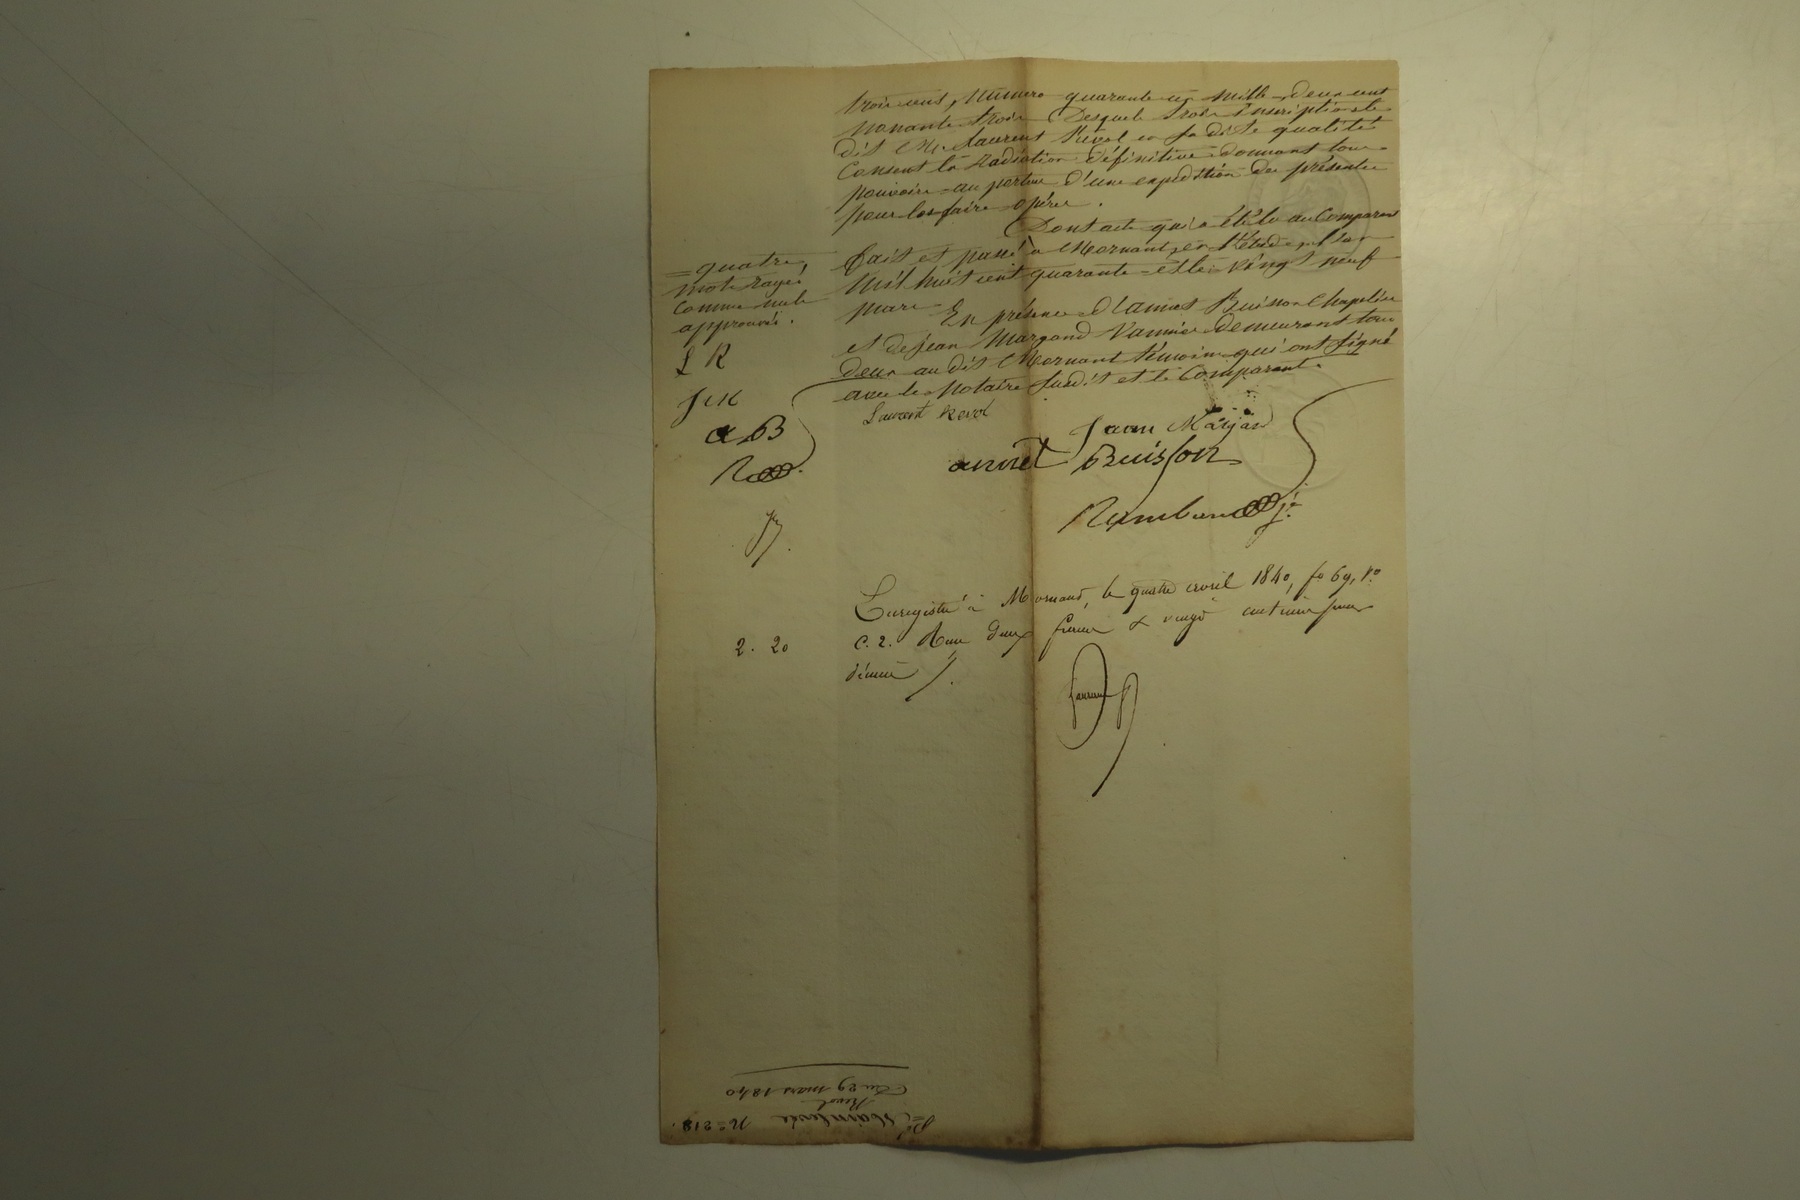 trois cent, Numéro quarante un mille deux cent
nonante trois Desquels trois Inscriptions le
dit Mr. Laurent Revol en sa dite qualité
Consent la radiation définitive donnant tous
pouvoirs au porteur d'une expédition des présentes
pour les faire opérer.
Dont acte qui a été lu au Comparant
fait et passé à Mornant en l'étude l'an
Mil huit cent quarante et le vingt neuf
mars En présence d'Annet Buisson Chapelier
et de Jean Margand Vannier demeurant tous
deux au dit Mornant témoins qui ont signé
avec le Notaire susdit et le Comparant.
= quatre
mots rayés
comme nuls
approuvés.
L R
J M
a B
Laurent Revol
Jean Marjand
annet Buisson
Enregistré à Mornant, le quatre avril 1840, fo 69, Vo
C. 2. Reçu deux francs & vingt centimes pour
décime
2. 20
No 218.
Mainlevée
Revol
Du 29 mars 1840